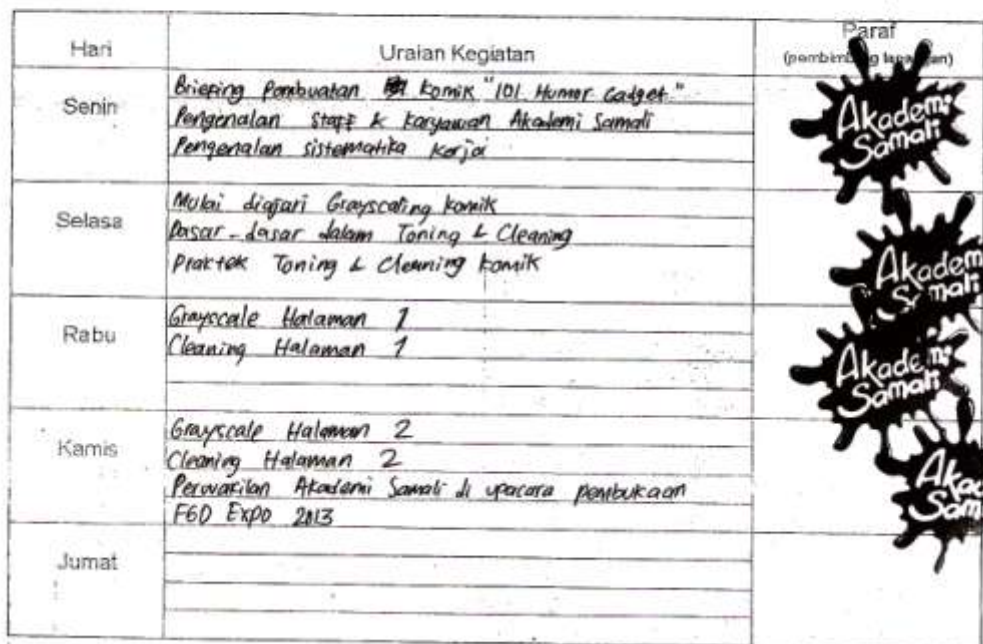 Hari Uraian Kegiatan Paraf
(pembimbing lapangan)
Senin
Briefing Pembuatan komik "101 Humor Gadget"
Pengenalan Staff & Karyawan Akademi Samali
Pengenalan sistematika kerja
Akademi
Samali
Selasa
Mulai diajari Grayscaling komik
Dasar-dasar dalam Toning & Cleaning
Praktek Toning & Cleaning komik
Akademi
Samali
Rabu
Grayscale Halaman 1
Cleaning Halaman 1
Akademi
Samali
Kamis
Grayscale Halaman 2
Cleaning Halaman 2
Perwakilan Akademi Samali di upacara pembukaan
FGD Expo 2013
Aka
Sam
Jumat